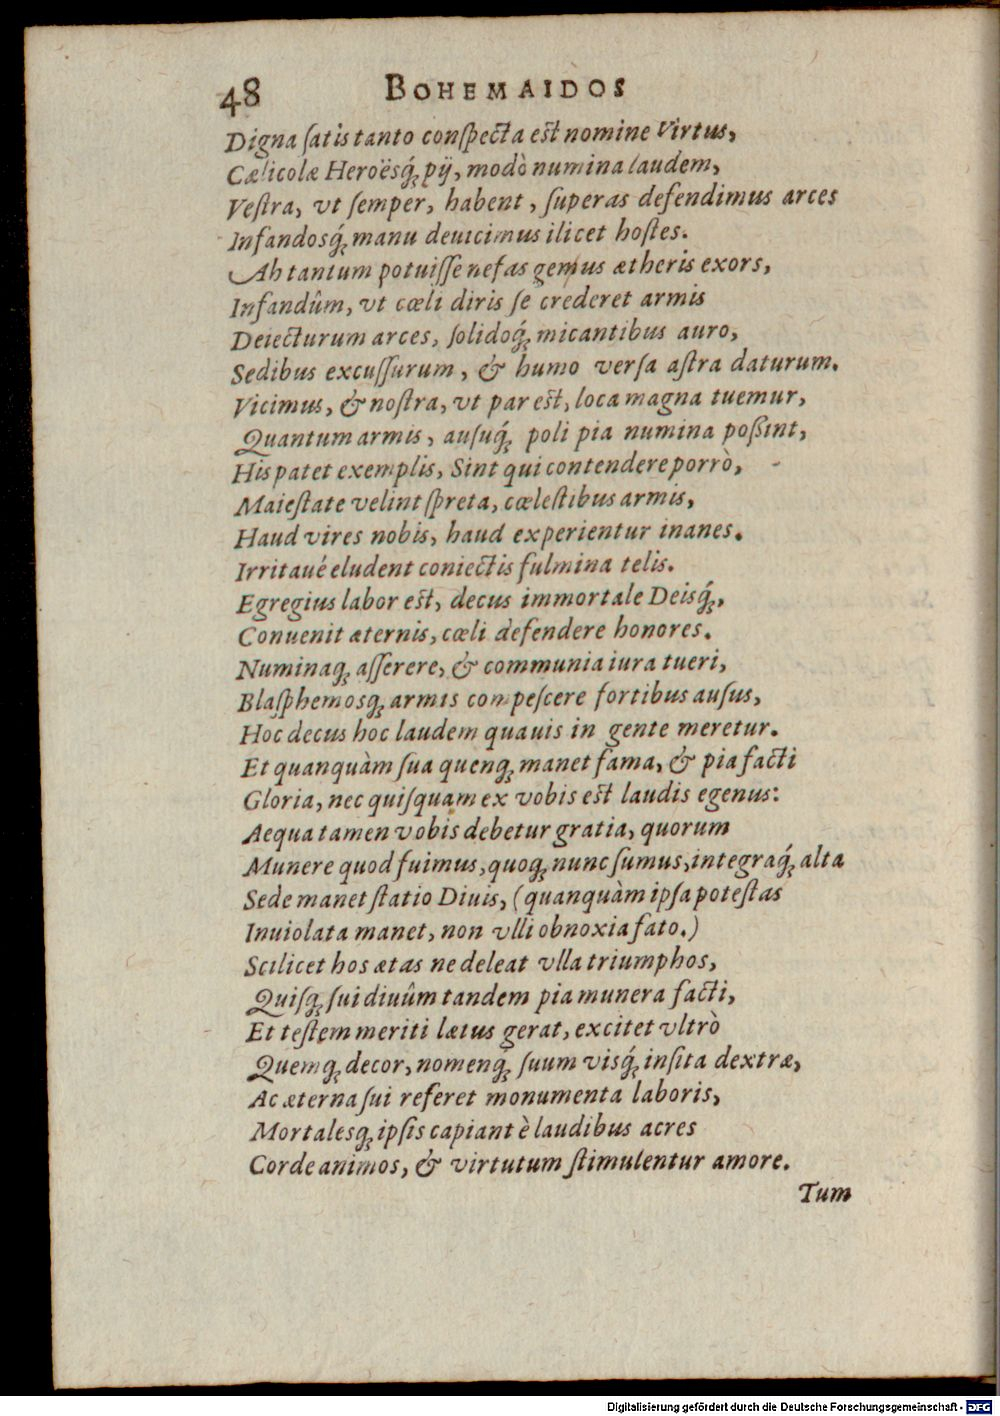 48 BOHEMAIDOS
Digna ſatis tanto conſpecta est nomine Virtus,
Cælicolæ Heroësq́; pij, modò numina laudem,
Veſtra, vt ſemper, habent, ſuperas defendimus arces
Infandosq́; manu deuicimus ilicet hoſtes.
Ah tantum potuiſſe nefas genus ætheris exors,
Infandûm, vt cœli diris ſe crederet armis
Deiecturum arces, ſolidoq́; micantibus auro,
Sedibus excuſſurum, & humo verſa aſtra daturum.
Vicimus, & noſtra, vt par est, loca magna tuemur,
Quantum armis, auſuq́; poli pia numina poßint,
His patet exemplis, Sint qui contendere porrò,
Maieſtate velint ſpreta, cœleſtibus armis,
Haud vires nobis, haud experientur inanes.
Irritaué eludent coniectis fulmina telis.
Egregius labor est, decus immortale Deisq́;,
Conuenit æternis, cœli defendere honores.
Numinaq; aſſerere, & communia iura tueri,
Blaſphemosq; armis compeſcere fortibus auſus,
Hoc decus hoc laudem quauis in gente meretur.
Et quanquàm ſua quenq; manet fama, & pia facti
Gloria, nec quiſquam ex vobis est laudis egenus:
Aequa tamen vobis debetur gratia, quorum
Munere quod fuimus, quoq; nunc ſumus, integraq́; alta
Sede manet ſtatio Diuis, (quanquàm ipſa poteſtas
Inuiolata manet, non vlli obnoxia fato.)
Scilicet hos ætas ne deleat vlla triumphos,
Quiſq; ſui diuûm tandem pia munera facti,
Et teſtem meriti lætus gerat, excitet vltrò
Quemq; decor, nomenq́; ſuum visq́; inſita dextræ,
Ac æterna ſui referet monumenta laboris,
Mortalesq; ipſis capiant è laudibus acres
Corde animos, & virtutum ſtimulentur amore.
Tum
Digitalisierung gefördert durch die Deutsche Forschungsgemeinschaft - DFG